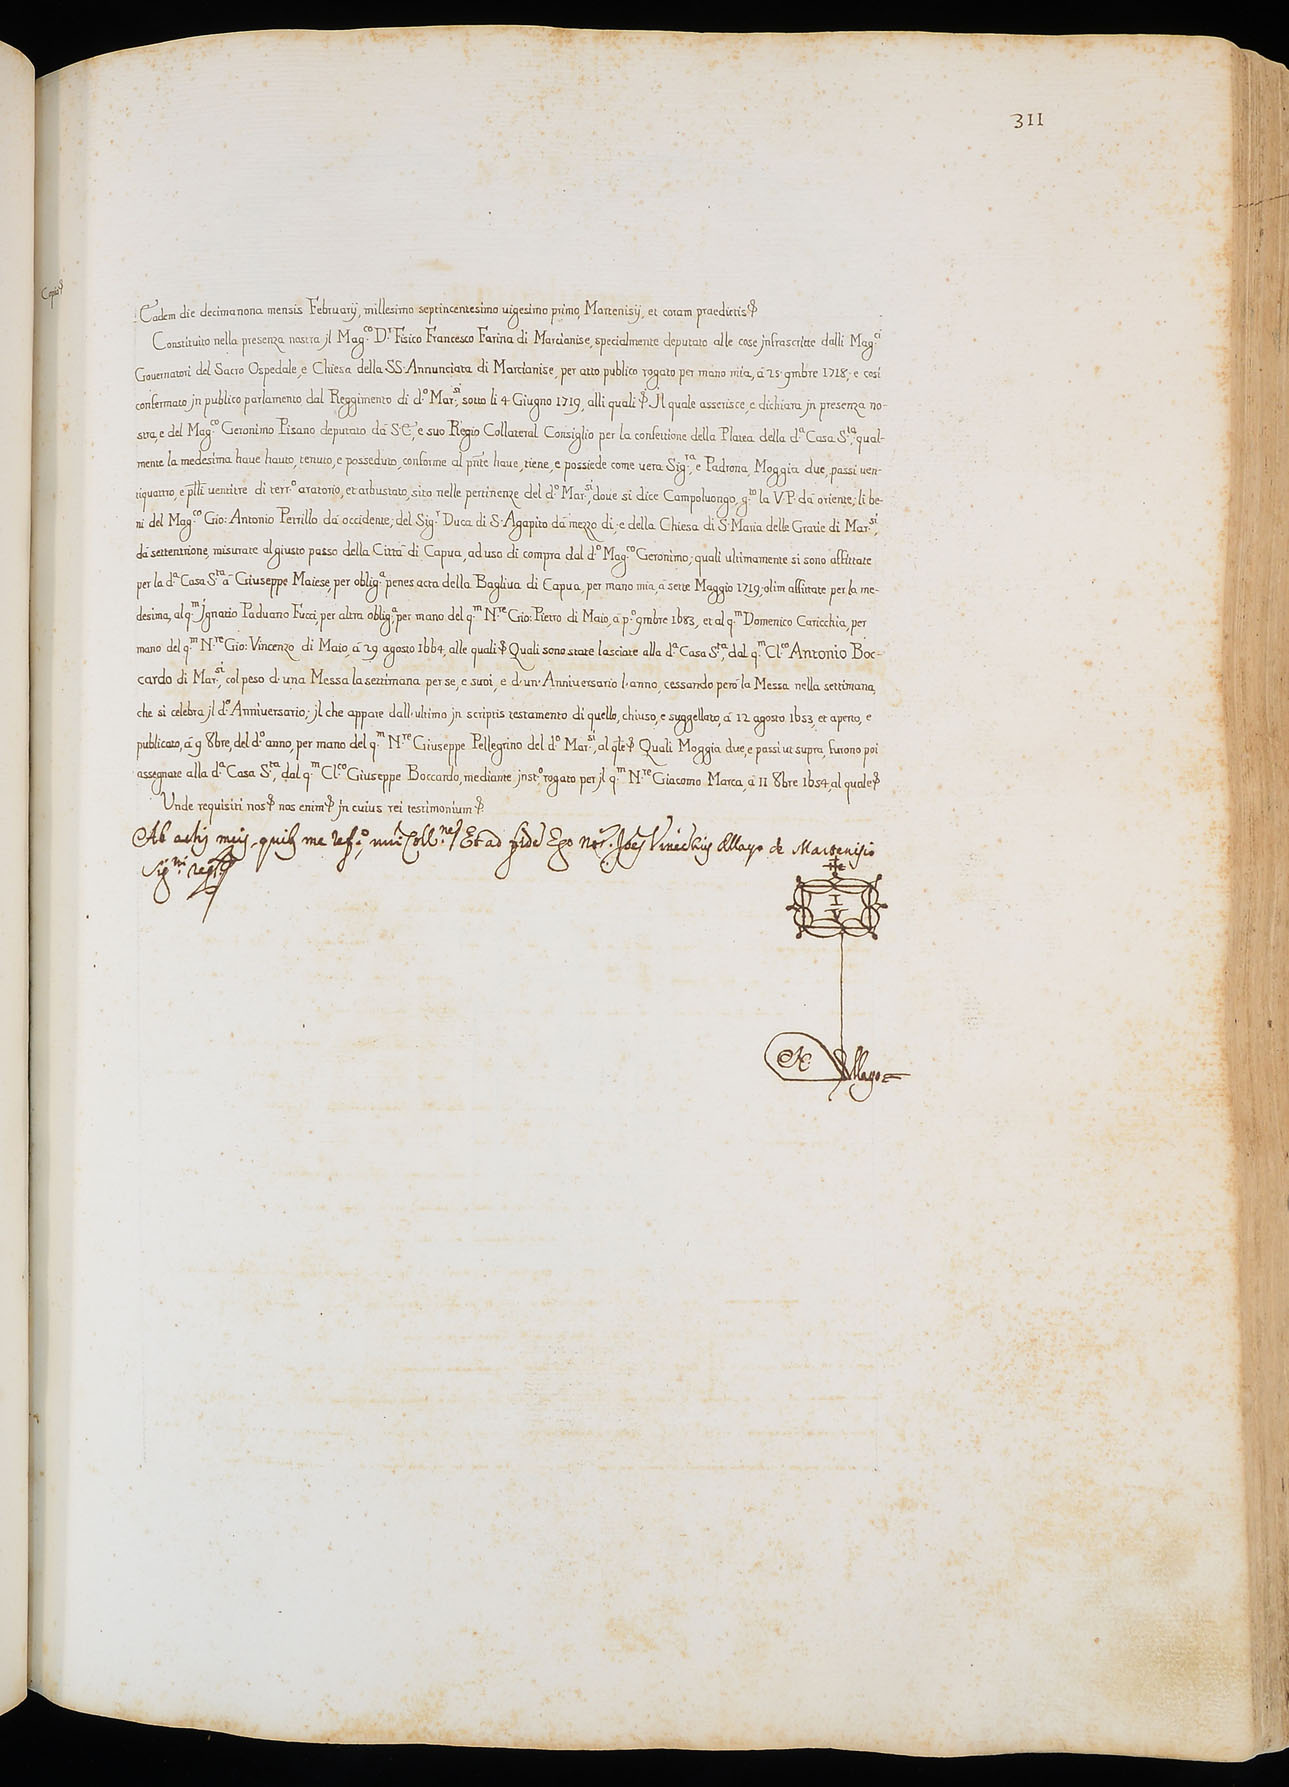 311
Copia
Eadem die decimanona mensis Februarij, millesimo septincentesimo uigesimo primo, Martenisij, et coram praedictis
Constituito nella presenza nostra jl Mag.co D.r Fisico Francesco Farina di Marcianise, specialmente deputato alle cose jnfrascritte dalli Mag.ci
Gouernatori del Sacro Ospedale, e Chiesa della SS. Annunciata di Marcianise, per atto publico rogato per mano mia, á 25 9mbre 1718, e cosí
confermato jn publico parlamento dal Reggimento di d.o Mar.si, sotto li 4 Giugno 1719, alli quali Jl quale asserisce, e dichiara jn presenza no-
stra, e del Mag.co Geronimo Pisano deputato dá S.E., e suo Regio Collateral Consiglio per la confettione della Platea della d.a Casa S.ta, qual-
mente la medesima haue hauto, tenuto, e posseduto, conforme al pñte haue, tiene, e possiede come uera Sig.ra, e Padrona, Moggia due, passi uen-
tiquattro, e p̃lli uentitre di terr.o aratorio, et arbustato, sito nelle pertinenze del d.o Mar.si, doue si dice Campoluongo, g.to la V.P. dá oriente, li be-
ni del Mag.co Gio: Antonio Petrillo dá occidente, del Sig.r Duca di S. Agapito dá mezzo dí, e della Chiesa di S. Maria delle Gratie di Mar.si,
dá settentrione, misurate al giusto passo della Cittá di Capua, ad uso di compra dal d.o Mag.co Geronimo; quali ultimamente si sono affittate
per la d.a Casa S.ta á Giuseppe Maiese, per oblig.a penes acta della Bagliua di Capua, per mano mia, á sette Maggio 1719, olim affittate per la me-
desima, al q.m Jgnatio Paduano Fucci, per altra oblig.a, per mano del q.m N.re Gio: Pietro di Maio, á p.o 9mbre 1683, et al q.m Domenico Caricchia, per
mano del q.m N.re Gio: Vincenzo di Maio, á 29 agosto 1664, alle quali Quali sono state lasciate alla d.a Casa S.ta, dal q.m Cl.co Antonio Boc-
cardo di Mar.si, col peso d'una Messa la settimana per se, e suoi, e d'un'Anniuersario l'anno, cessando peró la Messa nella settimana,
che si celebra jl d.o Anniuersario; jl che appare dall'ultimo jn scriptis testamento di quello, chiuso, e suggellato, á 12 agosto 1653, et aperto, e
publicato, á 9 8bre, del d.o anno, per mano del q.m N.re Giuseppe Pellegrino del d.o Mar.si, al q̃le Quali Moggia due, e passi ut supra, furono poi
assegnate alla d.a Casa S.ta, dal q.m Cl.co Giuseppe Boccardo, mediante jnst.o rogato per jl q.m N.re Giacomo Marca, á 11 8bre 1654, al quale
Unde requisiti nos nos enim jn cuius rei testimonium
Ab actis meis, quib me ref.o Coll.ne Et ad fidẽ Ego not. Joes Vincẽtius de Mayo de Martenisio
Sig.ni
I
V
de Mayo